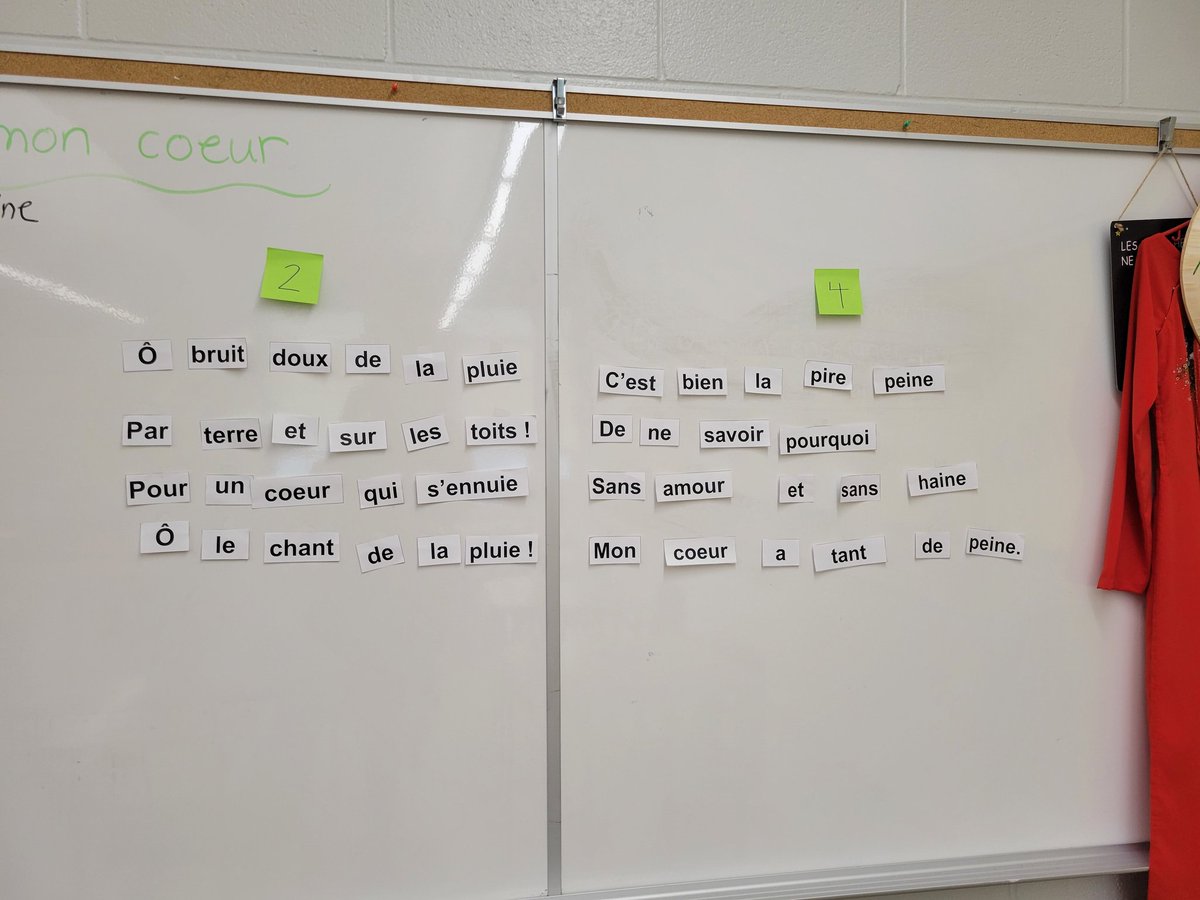 mon coeur
2
Ô bruit doux de la pluie
Par terre et sur les toits !
Pour un coeur qui s'ennuie
Ô le chant de la pluie !
4
C'est bien la pire peine
De ne savoir pourquoi
Sans amour et sans haine
Mon coeur a tant de peine.
LES
NE